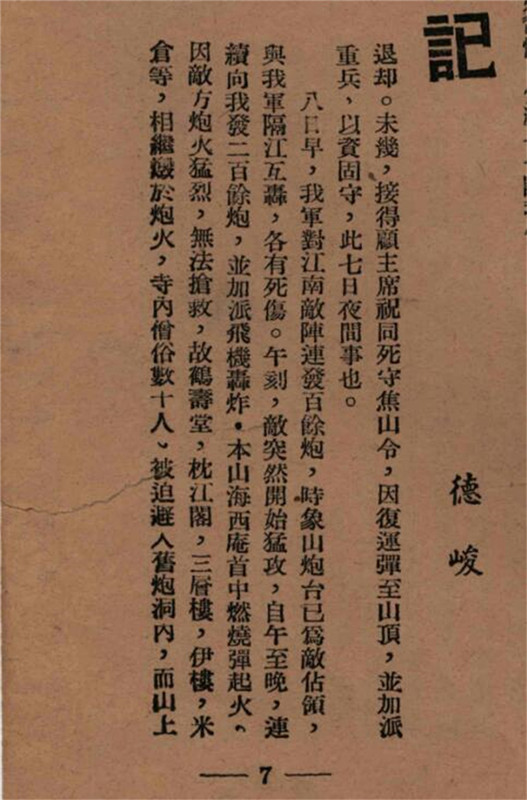 記
德峻
退却。未幾，接得顧主席祝同死守焦山令，因復運彈至山頂，並加派
重兵、以資固守，此七日夜間事也。
八日早，我軍對江南敵陣連發百餘炮，時象山炮台已爲敵佔領，
與我軍隔江互轟，各有死傷。午刻，敵突然開始猛攻，自午至晚，連
續向我發二百餘炮，並加派飛機轟炸·本山海西庵首中燃燒彈起火、
因敵方炮火猛烈，無法搶救，故鶴壽堂，枕江閣，三層樓，伊樓，米
倉等，相繼燬於炮火，寺內僧俗數十人、被迫避入舊炮洞內，而山上
— 7 —